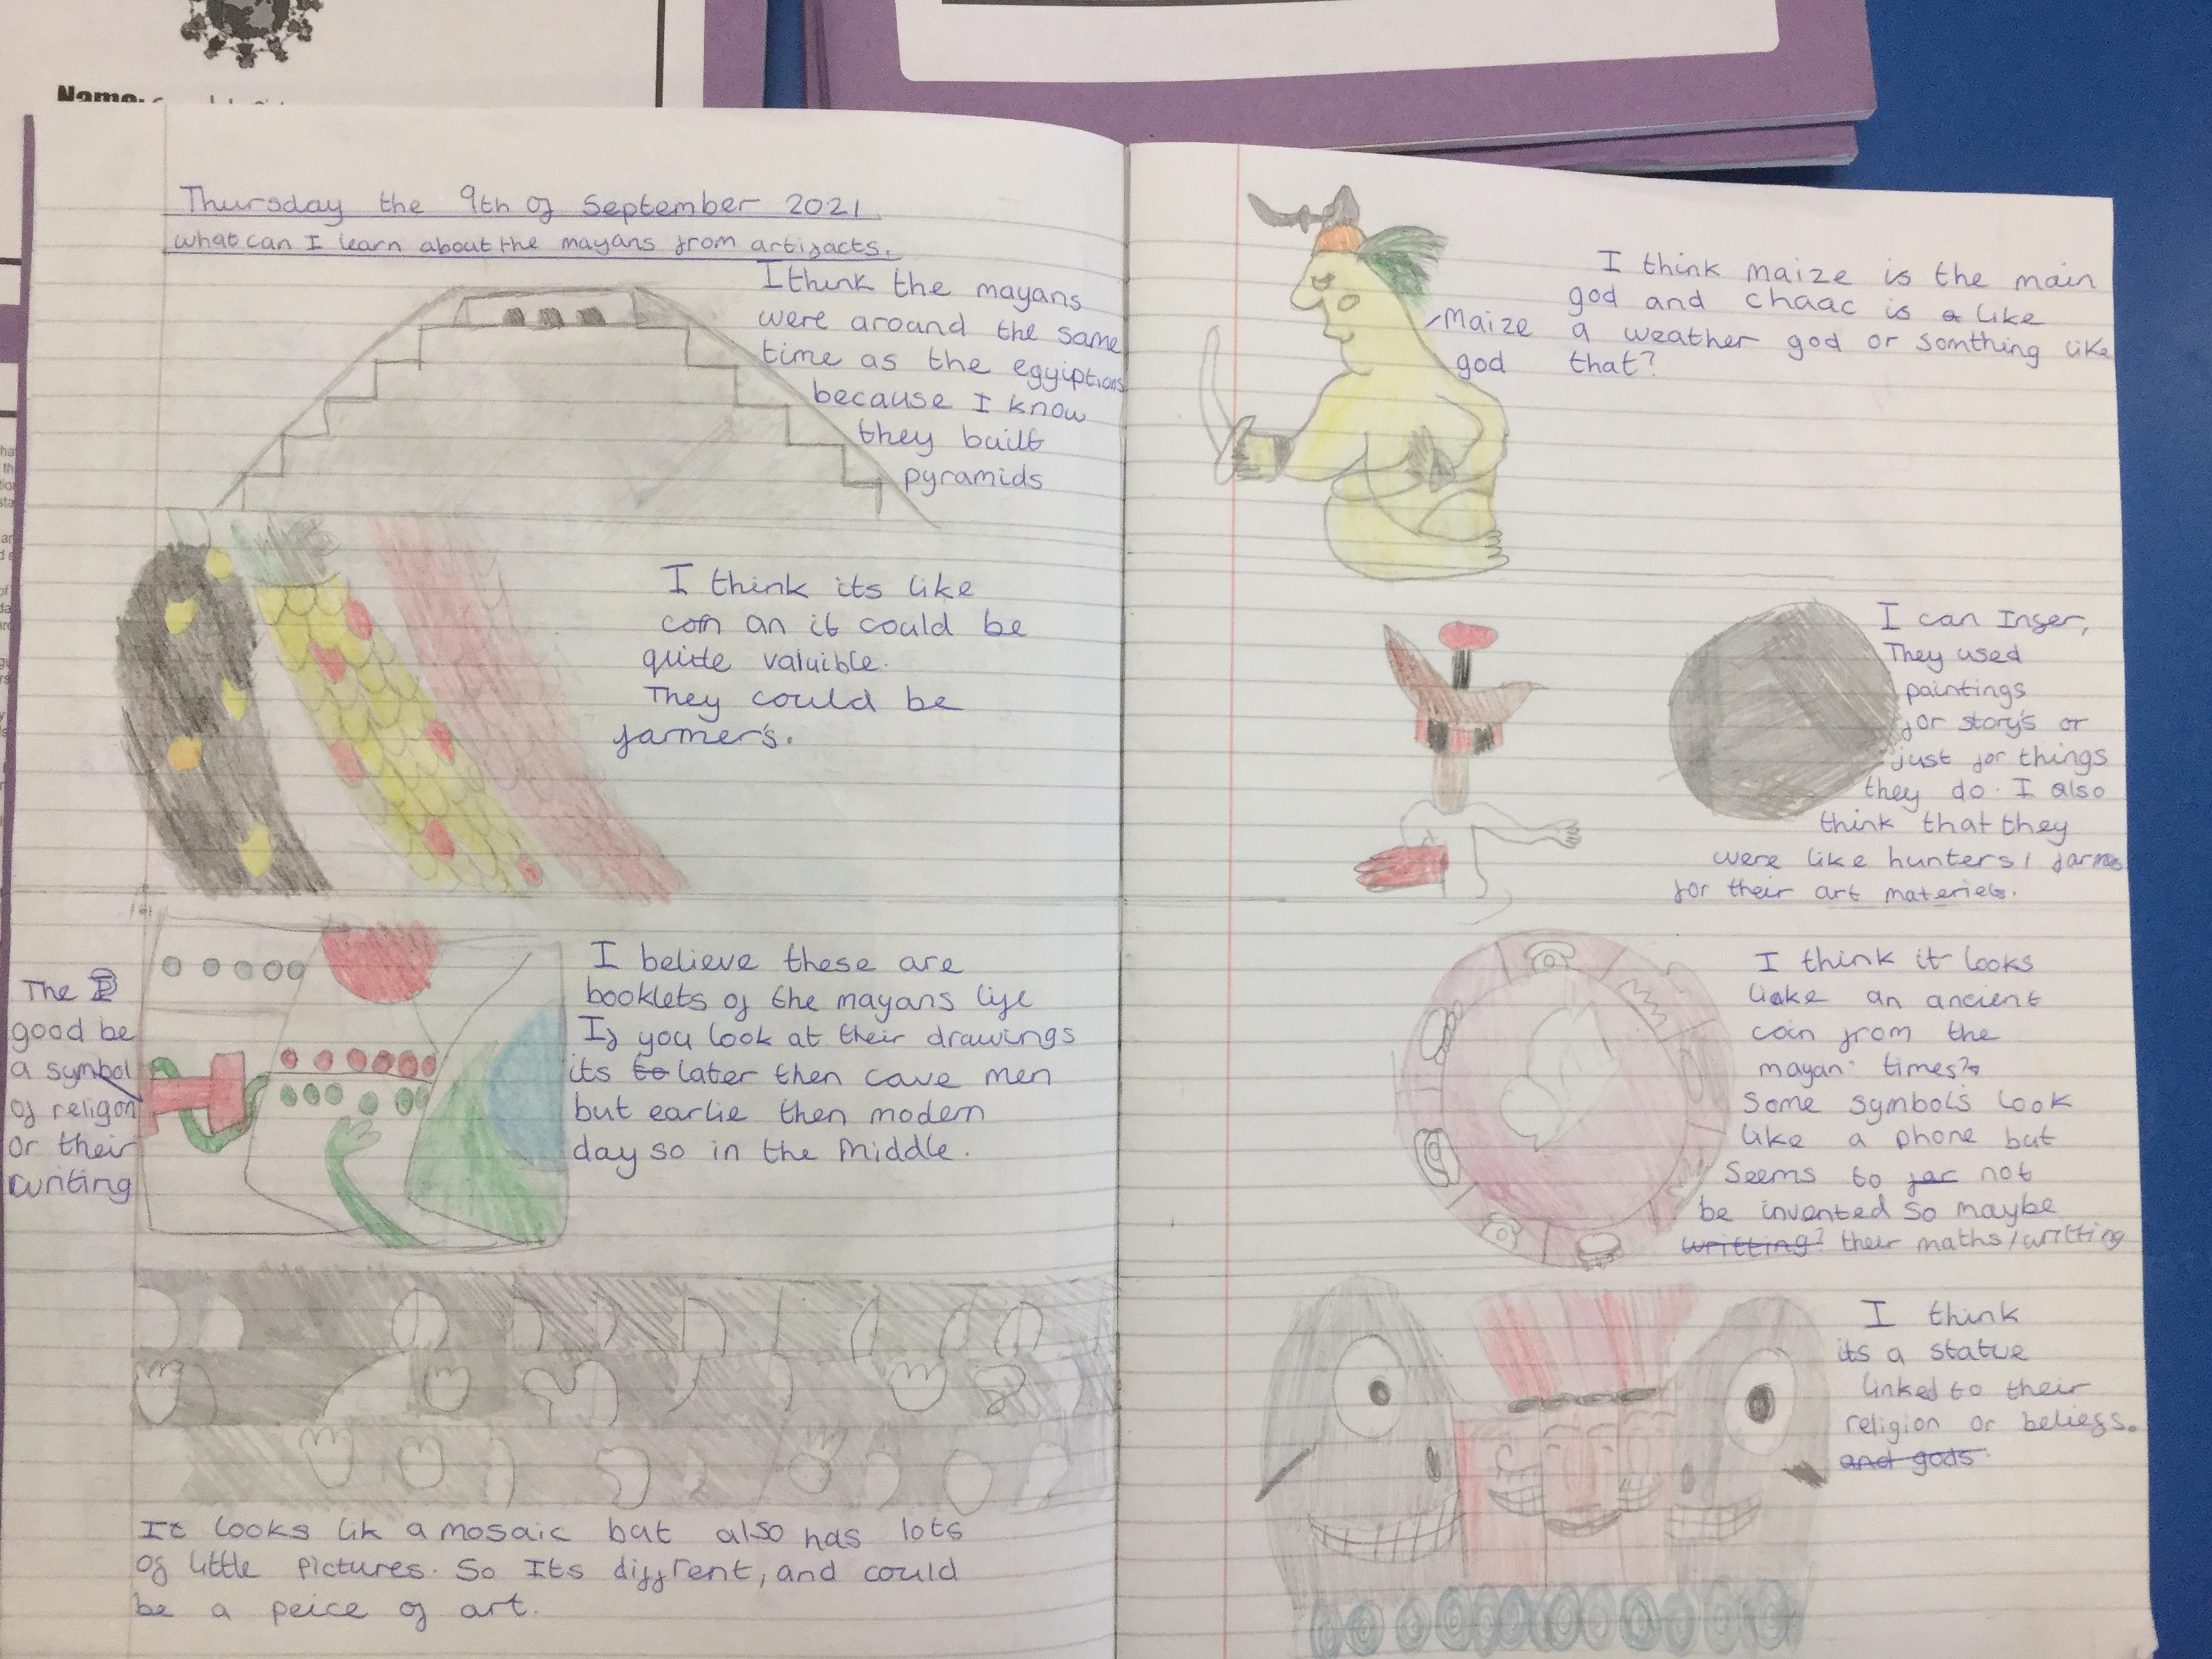 Name:
Thursday the 9th of September 2021
what can I learn about the mayans from artifacts.
I think the mayans
were around the same
time as the egyiptians
because I know
they built
pyramids
I think its like
corn an it could be
quite valuible.
They could be
farmer's.
The
good be
a symbol
of religon
or their
writing
I believe these are
booklets of the mayans life
If you look at their drawings
its to later then cave men
but earlie then modern
day so in the middle.
It looks lik a mosaic but also has lots
of little pictures. So Its diffrent, and could
be a peice of art.
Maize
god
I think maize is the main
god and chaac is a like
a weather god or somthing like
that?
I can Infer,
They used
paintings
for story's or
just for things
they do. I also
think that they
were like hunters/
for their art materiels.
I think it looks
like an ancient
coin from the
mayan times?
Some symbols look
like a phone but
seems to far not
be invented so maybe
writting? their maths/writting
I think
its a statue
linked to their
religion or beliefs.
and gods